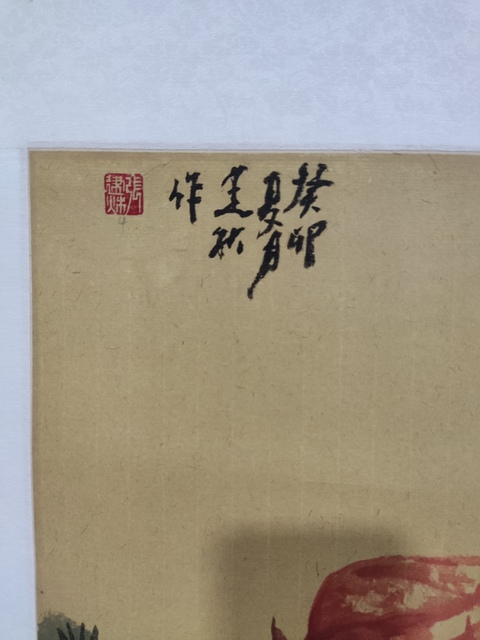 癸卯
夏月
建秋
作